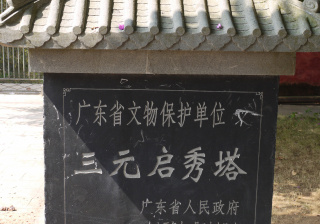 广东省文物保护单位
三元启秀塔
广东省人民政府